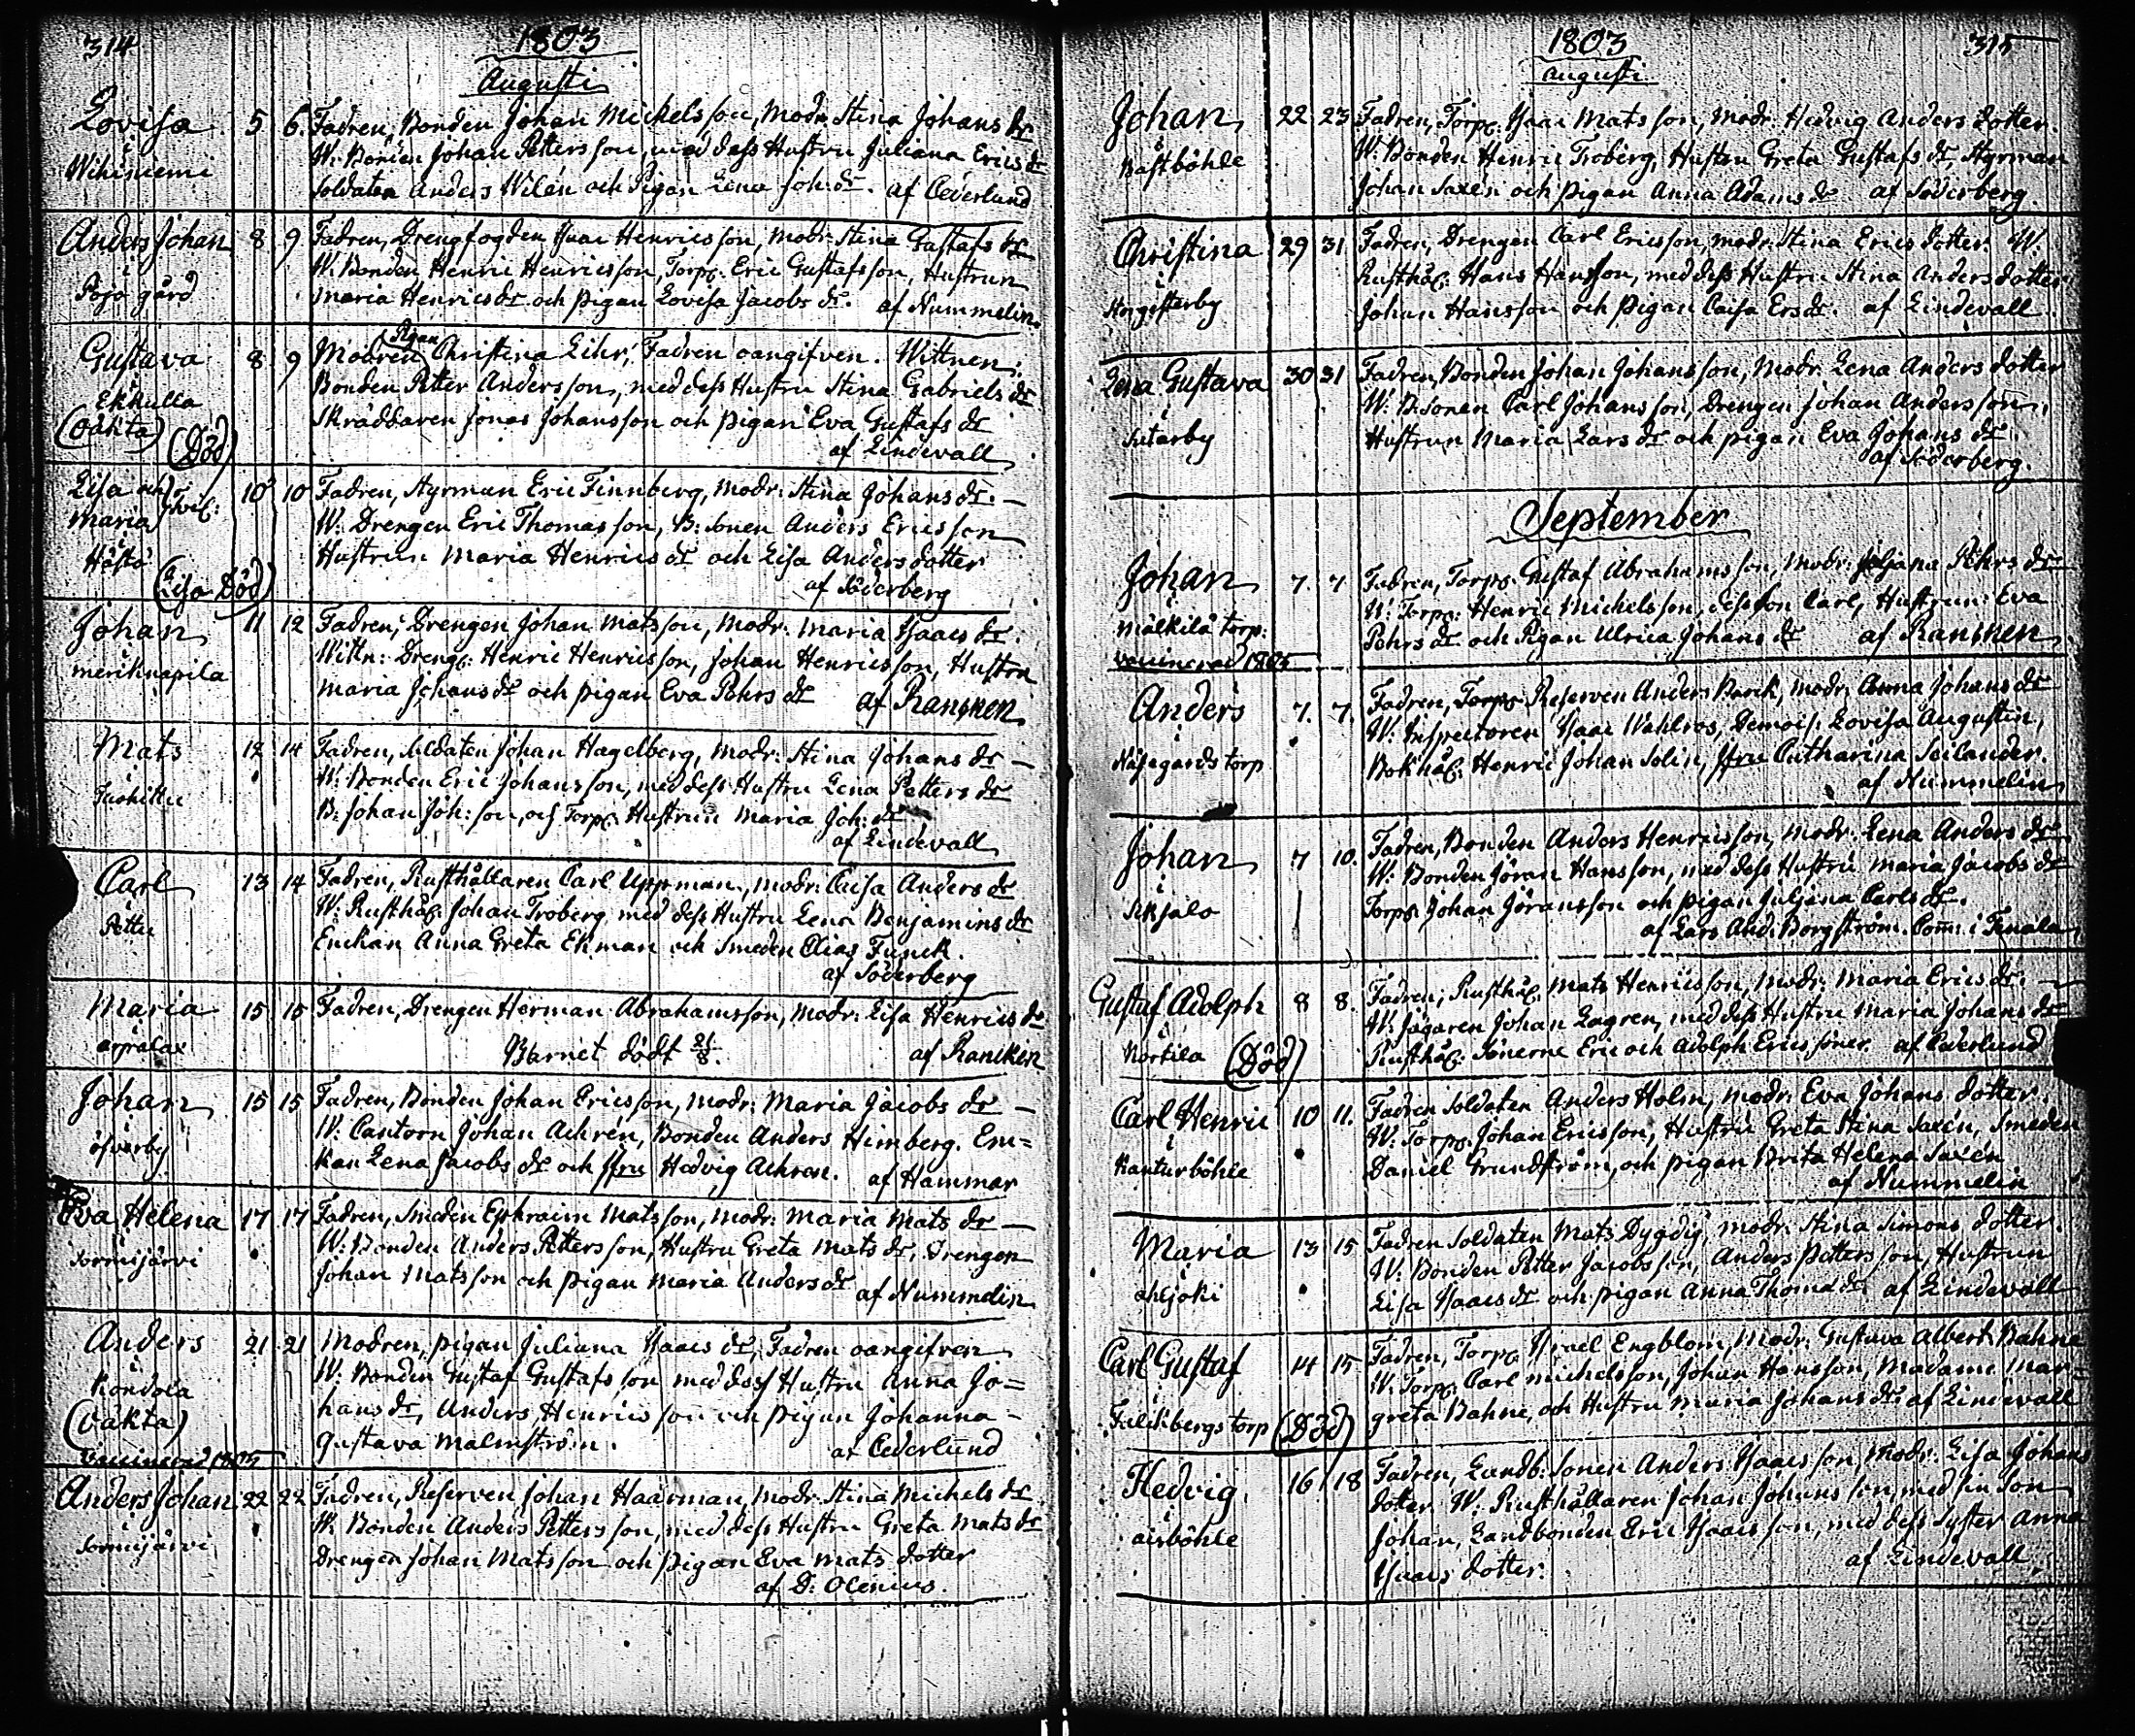 314
1803
Augusti
Lovisa 5 6. Fadren, Bonden Johan Mickelsson, Modr. Stina Johans dr
i W. Bonden Johan Pettersson, med dess Hustru Juliana Erics dr
Wihiniemi Soldaten Anders Wilén och Pigan Lena Joh: dr. af Cederlund
Anders Johan 8 9 Fadren, Drengfogden Isaac Henricsson, Modr. Stina Gustafs dr
i W. Bonden Henric Henricsson, Torp: Eric Gustafsson, Hustrun
Pojo gård Maria Henricsdr och pigan Lovisa Jacobs dr. af Nummelin
Gustava 8 9 Modren Pigan Christina Lihr, Fadren oangifven. Wittnen:
i Bonden Petter Andersson, med dess Hustru Stina Gabriels dr
Ekkulla Skräddaren Jonas Johansson och pigan Eva Gustafs dr
(oäkta) (Död) af Lindevall
Lisa och Maria Tvil: 10 10 Fadren, Styrman Eric Finnberg, Modr: Stina Johans dr. —
W: Drengen Eric Thomasson, B: Sonen Anders Ericsson
i Hästö Hustrun Maria Henrics dr och Lisa Andersdotter
(Lisa Död) af Söderberg
Johan 11 12 Fadren, Drengen Johan Matsson, Modr: Maria Isaacs dr.
i Wittn: Dreng: Henric Henricsson, Johan Henricsson, Hustru
meriknapila Maria Johans dr och pigan Eva Pehrs dr af Rancken
Mats 12 14 Fadren, Soldaten Johan Hagelberg, Modr: Stina Johans dr —
i W: Bonden Eric Johansson, med dess Hustru Lena Petters dr
B: Johan Joh:son, och Torp: Hustrun Maria Joh: dr
af Lindevall
Carl 13 14 Fadren, Rusthållaren Carl Uppman, Modr: Caisa Anders dr
i W. Rusthål: Johan Troberg med dess Hustru Lena Benjamins dr
Pettu Enckan Anna Greta Ekman och Smeden Elias Funck.
af Söderberg
Maria 15 15 Fadren, Drengen Herman Abrahamsson, Modr: Lisa Henrics dr
i Barnet dödt 21/8. af Rancken
Johan 15 15 Fadren, Bonden Johan Ericsson, Modr: Maria Jacobs dr —
i W. Cantorn Johan Achrén, Bonden Anders Himberg. En=
öfverby kan Lena Jacobs dr och Jfru Hedvig Achren. af Hammar
Eva Helena 17 17 Fadren, Smeden Ephraim Matsson, Modr: Maria Mats dr —
i W: Bonden Anders Pettersson, Hustru Greta Mats dr, Drengen
Sormijärvi Johan Matsson och pigan Maria Anders dr af Nummelin
Anders 21 21 Modren, pigan Juliana Isaacs dr, Fadren oangifven
i W. Bonden Gustaf Gustafsson med dess Hustru Anna Jo=
Kondola hans dr, Anders Henricsson och pigan Johanna
(oäkta) Gustava Malmström. af Cederlund
Vaccinerad 1805
Anders Johan 22 22 Fadren, Reserven Johan Haarman, Modr. Stina Michels dr
i W. Bonden Anders Pettersson, med dess Hustru Greta Mats dr
Sormijärvi Drengen Johan Matsson och pigan Eva Mats dotter
af D: Olenius.
1803 315
Augusti
Johan 22 23 Fadren, Torp: Isaac Matsson, Modr. Hedvig Anders dotter.
i W. Bonden Henric Troberg, Hustru Greta Gustafs dr, Styrman
Bastböhle Johan Saxén och pigan Anna Adams dr af Söderberg.
Christina 29 31 Fadren, Drengen Carl Ericsson, Modr: Stina Erics dotter. W.
i Rusthål: Hans Hansson, med dess Hustru Stina Anders dotter
Horgistarby Johan Hansson och pigan Caisa Ersdr. af Lindevall
Lena Gustava 30 31 Fadren, Bonden Johan Johansson, Modr. Lena Anders dotter
i W: B.sonen Carl Johansson, Drengen Johan Andersson,
Sutarby Hustrun Maria Lars dr och pigan Eva Johans dr.
af Söderberg.
September
Johan 7. 7 Fadren, Torp: Gustaf Abrahamsson, Modr: Juljana Pehrs dr
i W. Torp: Henric Michelsson, dess son Carl, Hustrun Eva
Mälkilä torp: Pehrs dr och Pigan Ulrica Johans dr af Rancken
Vaccinerad 1805
Anders 7. 7. Fadren, Torp: Reserven Anders Barck, Modr: Anna Johans dr
i W. Inspectoren Isaac Wahlroos, Demois: Lovisa Augustin,
Näsegårds torp Bokhål: Henric Johan Solin, Jfru Catharina Seilander.
af Nummelin
Johan 7 10. Fadren, Bonden Anders Henricsson, Modr. Lena Anders dr
i W: Bonden Jöran Hansson, med dess Hustru Maria Jacobs dr
Torp: Johan Jöransson och pigan Juljana Carls dr.
af Lars And: Borgström. Com: i Tenala
Gustaf Adolph 8 8. Fadren, Rusthål: Mats Henricsson, Modr: Maria Erics dr. —
i W: Jägaren Johan Lagren, med dess Hustru Maria Johans dr
(Död) Rusthål: Sönerne Eric och Adolph Ericssöner. af Cederlund
Carl Henric 10 11. Fadren Soldaten Anders Holm, Modr: Eva Johans dotter.
i W: Torp: Johan Ericsson, Hustru Greta Stina Saxén, Smeden
Kanturböhle Daniel Grundström, och pigan Brita Helena Saxén
af Nummelin
Maria 13 15 Fadren Soldaten Mats Dygdig, Modr. Stina Simons dotter.
i W: Bonden Petter Jacobsson, Anders Pettersson, Hustrun
ahljoki Lisa Isaacs dr och pigan Anna Thoma dr. af Lindevall
Carl Gustaf 14 15 Fadren, Torp: Israel Engblom, Modr: Gustava Albert: Bahne
i W. Torp: Carl Michelsson, Johan Hansson, Madame Mar=
torp (Död) greta Bahne, och Hustru Maria Johans dr. af Lindevall
Hedvig 16 18 Fadren, Landb: Sonen Anders Isaacsson, Modr: Lisa Johans
i dotter. W. Rusthållaren Johan Johansson, med sin Son
Johan, Landbonden Eric Isaacsson, med dess Syster Anna
Isaacs dotter. af Lindevall